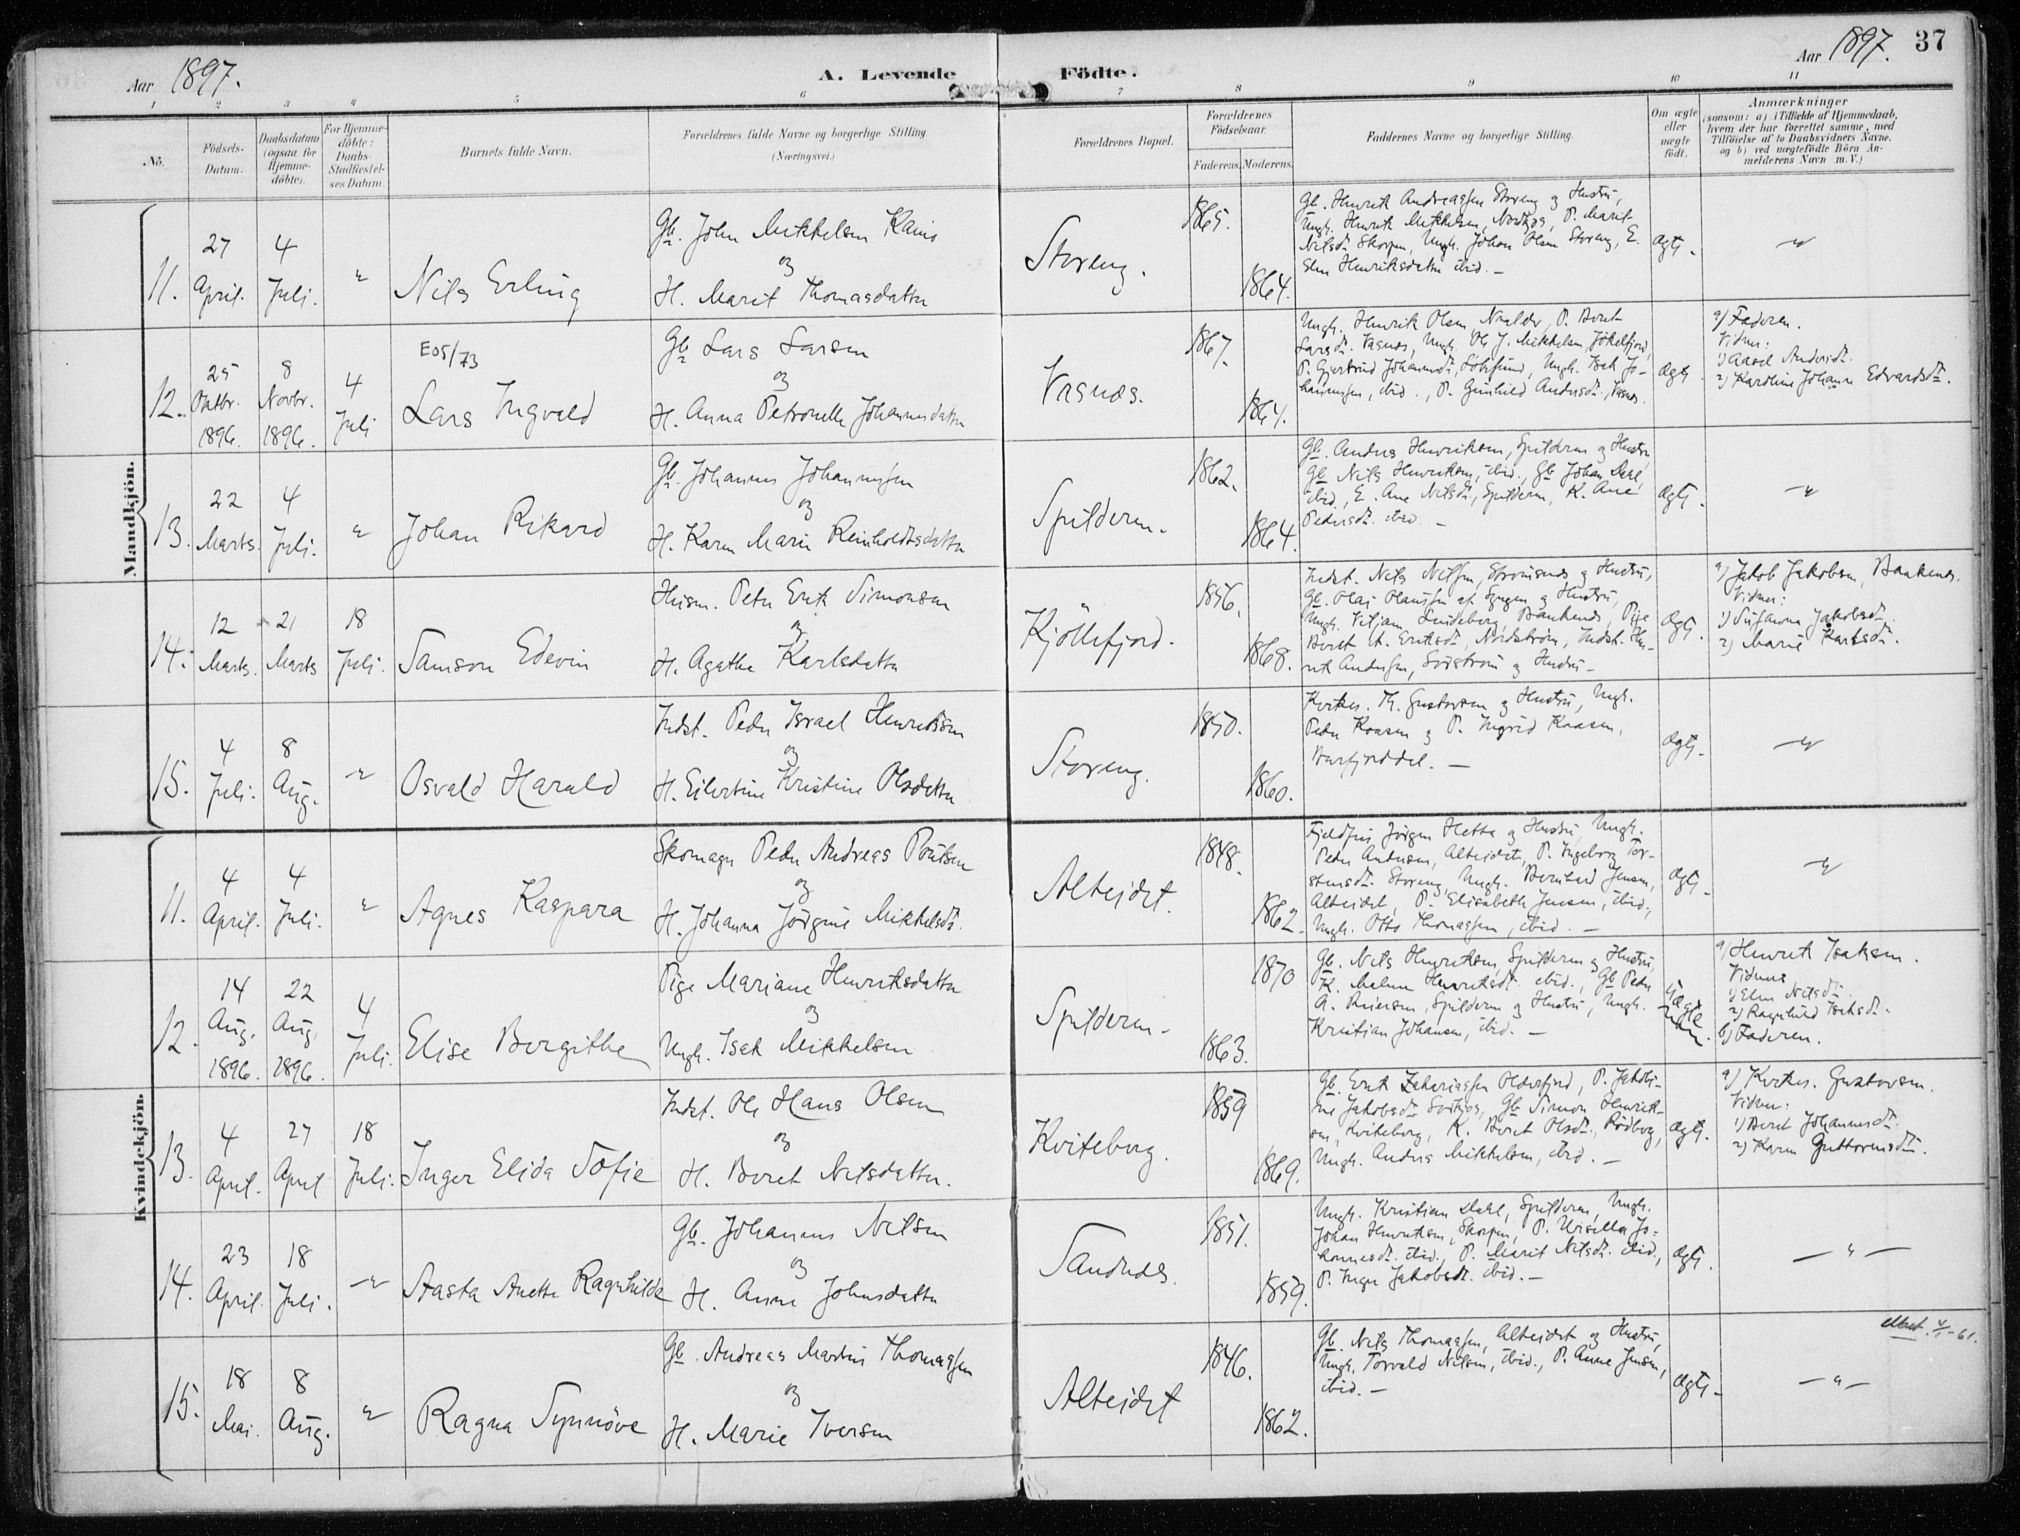 Aar 1897.
A. Levende Födte.
Aar 1897. 37
1 2 3 4 5 6 7 8 9 10 11
No.
Födsels-
Datum.
Daabsdatum
(ogsaa for
Hjemme-
döbte).
For Hjemme-
döbte:
Daabs-
Stadfæstel-
ses Datum.
Barnets fulde Navn.
Forældrenes fulde Navne og borgerlige Stilling
(Næringsvei.)
Forældrenes Bopæl.
Forældrenes
Födselsaar.
Faderens. Moderens.
Faddernes Navne og borgerlige Stilling.
Om ægte
eller
uægte
födt.
Anmærkninger
(saasom: a) i Tilfælde af Hjemmedaab,
hvem der har forrettet samme, med
Tilföielse af to Daabsvidners Navne.
og b) ved uægtefödte Börn An-
melderens Navn m. V.)
Mandkjön.
11.
27
April.
4
Juli.
"
Nils Erling
Gb. John Mikkelsen
og
H. Marit Thomasdatter
Storeng.
1865.
1864.
Gb. Henrik Andreassen Storeng og Hustru,
Ungk. Henrik Mikkelsen, P. Marit
Nilsdt. Skorpen, Ungk. Johan Olsen Storeng, E.
Elen Henriksdatter ibid. –
Ægte.
"
12.
25
Oktbr.
1896.
8
Novbr.
1896.
4
Juli
E05/73
Lars Ingvald
Gb Lars Larsen
og
H. Anna Petronelle Johannesdatter
Vasnæs.
1867.
1864.
Ungk. Henrik Olsen P. Beret
Larsdt. Vasnæs, Ungk. Ole J. Mikkelsen, Jökelfjord,
P. Gjertrud Johannesdt. Ungk. Isak Jo-
hannessen, ibid., P. Gunhild Andersdt. Vasnæs.
Ægte
a) Faderen.
Vidner:
1) Andersdt.
2) Karoline Johanne Edvardsdt.
13.
22
Marts.
4
Juli.
"
Johan Rikard
Gb. Johannes Johannessen
og
H. Karen Marie Reinholdtsdatter
Spilderen.
1862.
1864.
Gb. Anders Henriksen, Spilderen og Hustru
Gb Nils Henriksen, ibid., Gb Johan Dahl,
ibid., E. Ane Nilsdt, Spilderen, K. Ane
Pedersdt. ibid. –
Ægte.
"
14.
12
Marts.
21
Marts
18
Juli.
Samson Edevin
Husm. Peter Erik Simonsen
og
H. Agathe Karlsdatter
Kjöllefjord.
1856.
1868.
Indst. Nils Nilsen, Strömsnæs og Hustru,
Gb. Olai Olaussen af og Hustru,
Ungk. Lindeborg, Bankenæs, Pige
Beret A. Eriksdt, Nordström, Indst. Hen-
rik Andersen, Sörström og Hustru –
Ægte.
a) Jakob Jakobsen, Bankenæs.
Vidner:
1) Susanna Jakobsdt.
2) Marie Karlsdt.
15.
4
Juli.
8
Aug.
"
Osvald Harald
Indst. Peder Israel Henriksen
og
H. Eilertine Kristine Olsdatter
Storeng.
1850.
1860.
Kirkes. Th. Gustavsen og Hustru, Ungk.
Peder Kaasen og P. Ingrid Kaasen,
Burfjorddal. –
Ægte.
"
Kvindekjön.
11.
4
April.
4
Juli.
"
Agnes Kaspara
Skomager Peder Andreas
og
H. Johanna Jörgine Mikkelsdt.
Alteidet.
1848.
1862.
Jörgen Hetta og Hustru, Ungk.
Peder Andersen, Alteidet, P. Ingeborg Tor-
stensdt. Storeng, Ungk. Bernhard Jensen,
Alteidet, P. Elisabeth Jensen, ibid.,
Ungk. Otto Thomassen, ibid. –
Ægte.
"
12.
14
Aug.
1896.
22
Aug.
1896.
4
Juli.
Elise Bergithe
Pige Mariane Henriksdatter
og
Ungk. Isak Mikkelsen
Spilderen.
1870
1863.
Gb. Nils Henriksen, Spilderen og Hustru,
K. Malene Henriksdt. ibid., Gb Peder
A. Spilderen og Hustru, Ungk.
Kristian Johansen, ibid. –
Uægte
a) Henrik Isaksen.
Vidner
1) Elen Nilsdt.
2) Ragnhild Isaksdt.
b) Faderen.
13.
4
April.
27
April
18
Juli.
Inger Elida Sofie
Indst. Ole Hans Olsen
og
H. Beret Nilsdatter.
Kviteberg.
1859
1869.
Gb. Erik Zakariassen Olderfjord, P. Jakobi-
ne Jakobsdt. Gb Simon Henrik-
sen, Kviteberg, K. Beret Olsdt., Rödberg,
Ungk. Anders Mikkelsen, ibid. –
Ægte.
a) Kirkes. Gustavsen.
Vidner:
1) Beret Johannesdt.
2) Karen Guttormsdt.
14.
23
April.
18
Juli.
"
Aasta Anette Ragnhilda
Gb. Johannes Nilsen
og
H. Anne Johnsdatter
Sandnæs.
1851.
1859.
Ungk. Kristian Dahl, Spilderen, Ungk.
Johan Henriksen, Skorpen, P. Jo-
hannesdt. ibid., P. Marit Nilsdt. ibid.,
P. Inger Jakobsdt. ibid. –
Ægte.
– " –
15.
18
Mai.
8
Aug.
"
Ragna Synnöve
Gb. Andreas Martin Thomassen
og
H. Marie Iversen
Alteidet
1846.
1862.
Gb. Nils Thomassen, Alteidet og Hustru,
Ungk. Torvald Nilsen, ibid., P. Anne Jensen,
ibid. –
Ægte.
– " –